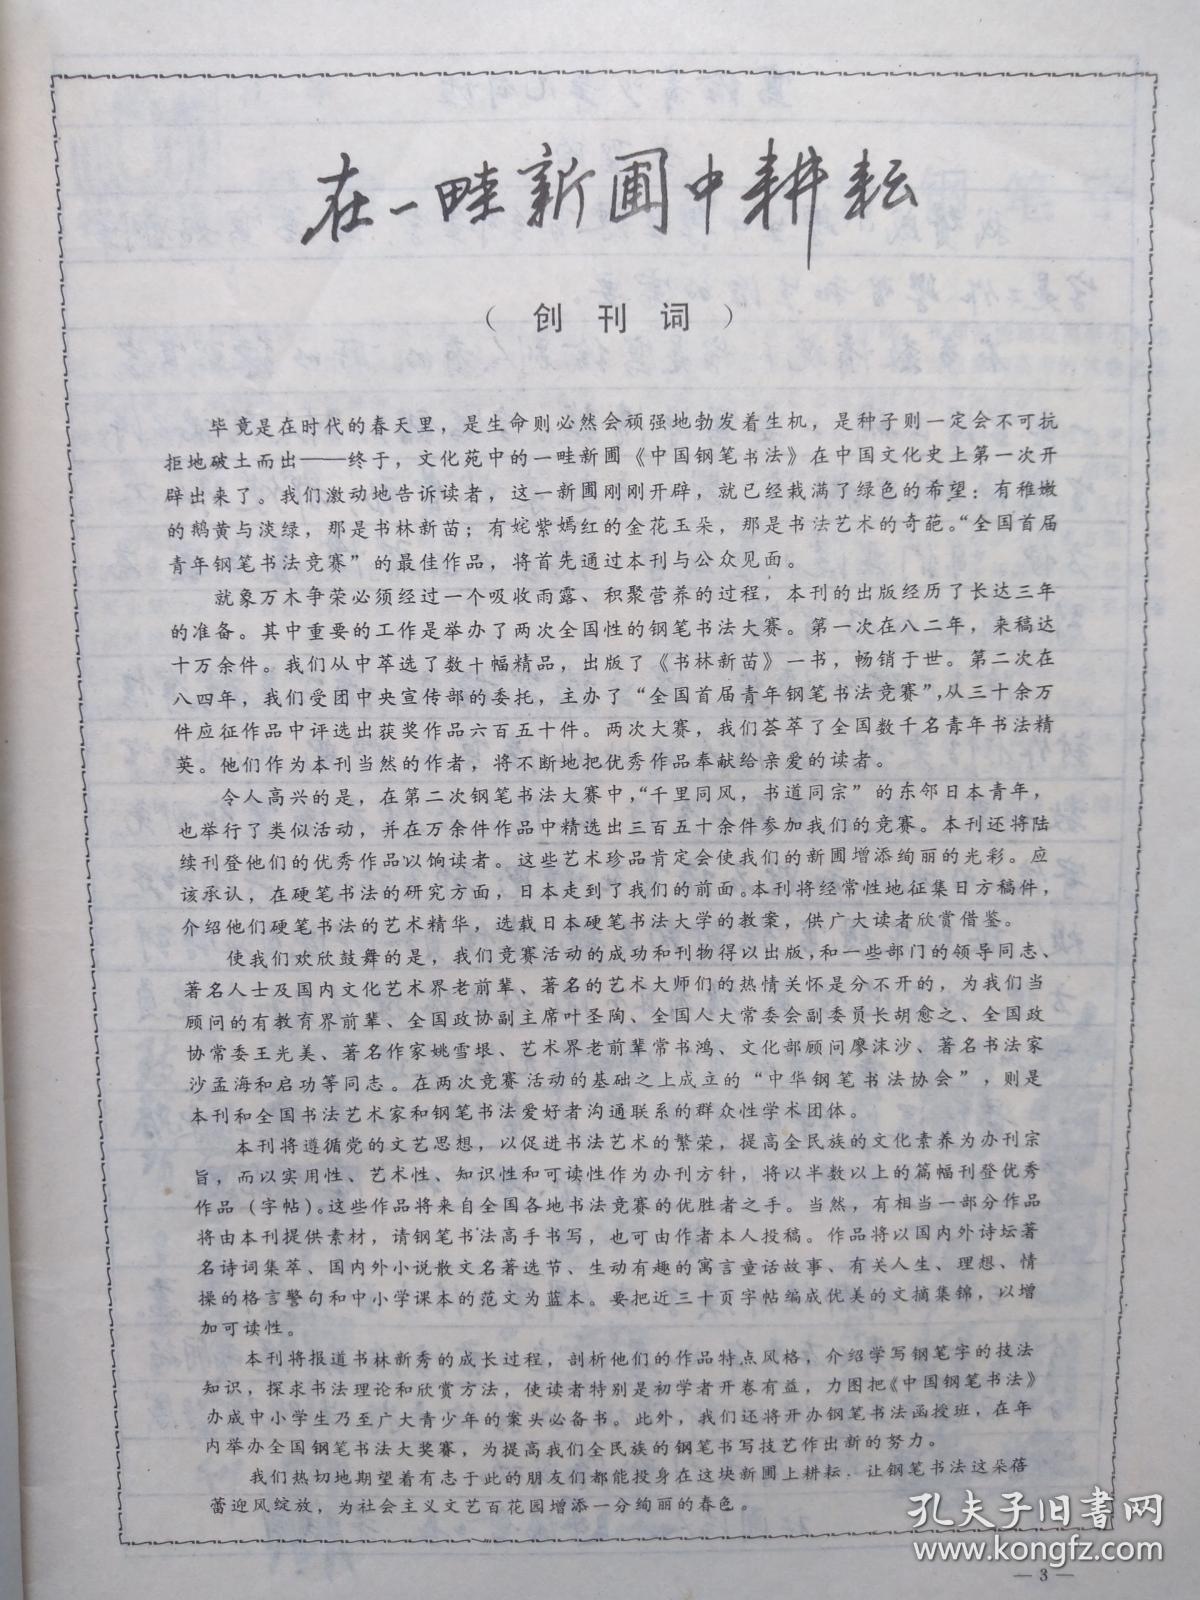 在一畦新圃中耕耘
（创刊词）
毕竟是在时代的春天里，是生命则必然会顽强地勃发着生机，是种子则一定会不可抗
拒地破土而出——终于，文化苑中的一畦新圃《中国钢笔书法》在中国文化史上第一次开
辟出来了。我们激动地告诉读者，这一新圃刚刚开辟，就已经栽满了绿色的希望：有稚嫩
的鹅黄与淡绿，那是书林新苗；有姹紫嫣红的金花玉朵，那是书法艺术的奇葩。“全国首届
青年钢笔书法竞赛”的最佳作品，将首先通过本刊与公众见面。
就象万木争荣必须经过一个吸收雨露、积聚营养的过程，本刊的出版经历了长达三年
的准备。其中重要的工作是举办了两次全国性的钢笔书法大赛。第一次在八二年，来稿达
十万余件。我们从中萃选了数十幅精品，出版了《书林新苗》一书，畅销于世。第二次在
八四年，我们受团中央宣传部的委托，主办了“全国首届青年钢笔书法竞赛”，从三十余万
件应征作品中评选出获奖作品六百五十件。两次大赛，我们荟萃了全国数千名青年书法精
英。他们作为本刊当然的作者，将不断地把优秀作品奉献给亲爱的读者。
令人高兴的是，在第二次钢笔书法大赛中，“千里同风，书道同宗”的东邻日本青年，
也举行了类似活动，并在万余件作品中精选出三百五十余件参加我们的竞赛。本刊还将陆
续刊登他们的优秀作品以饷读者。这些艺术珍品肯定会使我们的新圃增添绚丽的光彩。应
该承认，在硬笔书法的研究方面，日本走到了我们的前面。本刊将经常性地征集日方稿件，
介绍他们硬笔书法的艺术精华，选载日本硬笔书法大学的教案，供广大读者欣赏借鉴。
使我们欢欣鼓舞的是，我们竞赛活动的成功和刊物得以出版，和一些部门的领导同志、
著名人士及国内文化艺术界老前辈、著名的艺术大师们的热情关怀是分不开的，为我们当
顾问的有教育界前辈、全国政协副主席叶圣陶、全国人大常委会副委员长胡愈之、全国政
协常委王光美、著名作家姚雪垠、艺术界老前辈常书鸿、文化部顾问廖沫沙、著名书法家
沙孟海和启功等同志。在两次竞赛活动的基础之上成立的“中华钢笔书法协会”，则是
本刊和全国书法艺术家和钢笔书法爱好者沟通联系的群众性学术团体。
本刊将遵循党的文艺思想，以促进书法艺术的繁荣，提高全民族的文化素养为办刊宗
旨，而以实用性、艺术性、知识性和可读性作为办刊方针，将以半数以上的篇幅刊登优秀
作品（字帖）。这些作品将来自全国各地书法竞赛的优胜者之手。当然，有相当一部分作品
将由本刊提供素材，请钢笔书法高手书写，也可由作者本人投稿。作品将以国内外诗坛著
名诗词集萃、国内外小说散文名著选节、生动有趣的寓言童话故事、有关人生、理想、情
操的格言警句和中小学课本的范文为蓝本。要把近三十页字帖编成优美的文摘集锦，以增
加可读性。
本刊将报道书林新秀的成长过程，剖析他们的作品特点风格，介绍学写钢笔字的技法
知识，探求书法理论和欣赏方法，使读者特别是初学者开卷有益，力图把《中国钢笔书法》
办成中小学生乃至广大青少年的案头必备书。此外，我们还将开办钢笔书法函授班，在年
内举办全国钢笔书法大奖赛，为提高我们全民族的钢笔书写技艺作出新的努力。
我们热切地期望着有志于此的朋友们都能投身在这块新圃上耕耘．让钢笔书法这朵蓓
蕾迎风绽放，为社会主义文艺百花园增添一分绚丽的春色。
孔夫子旧书网
www.kongfz.com
— 3 —